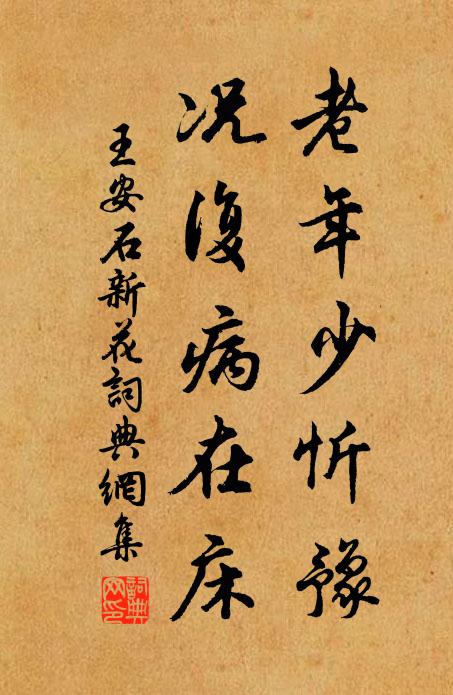 老年少忻豫
况復病在床
王安石新花詞典網集
詞典網印